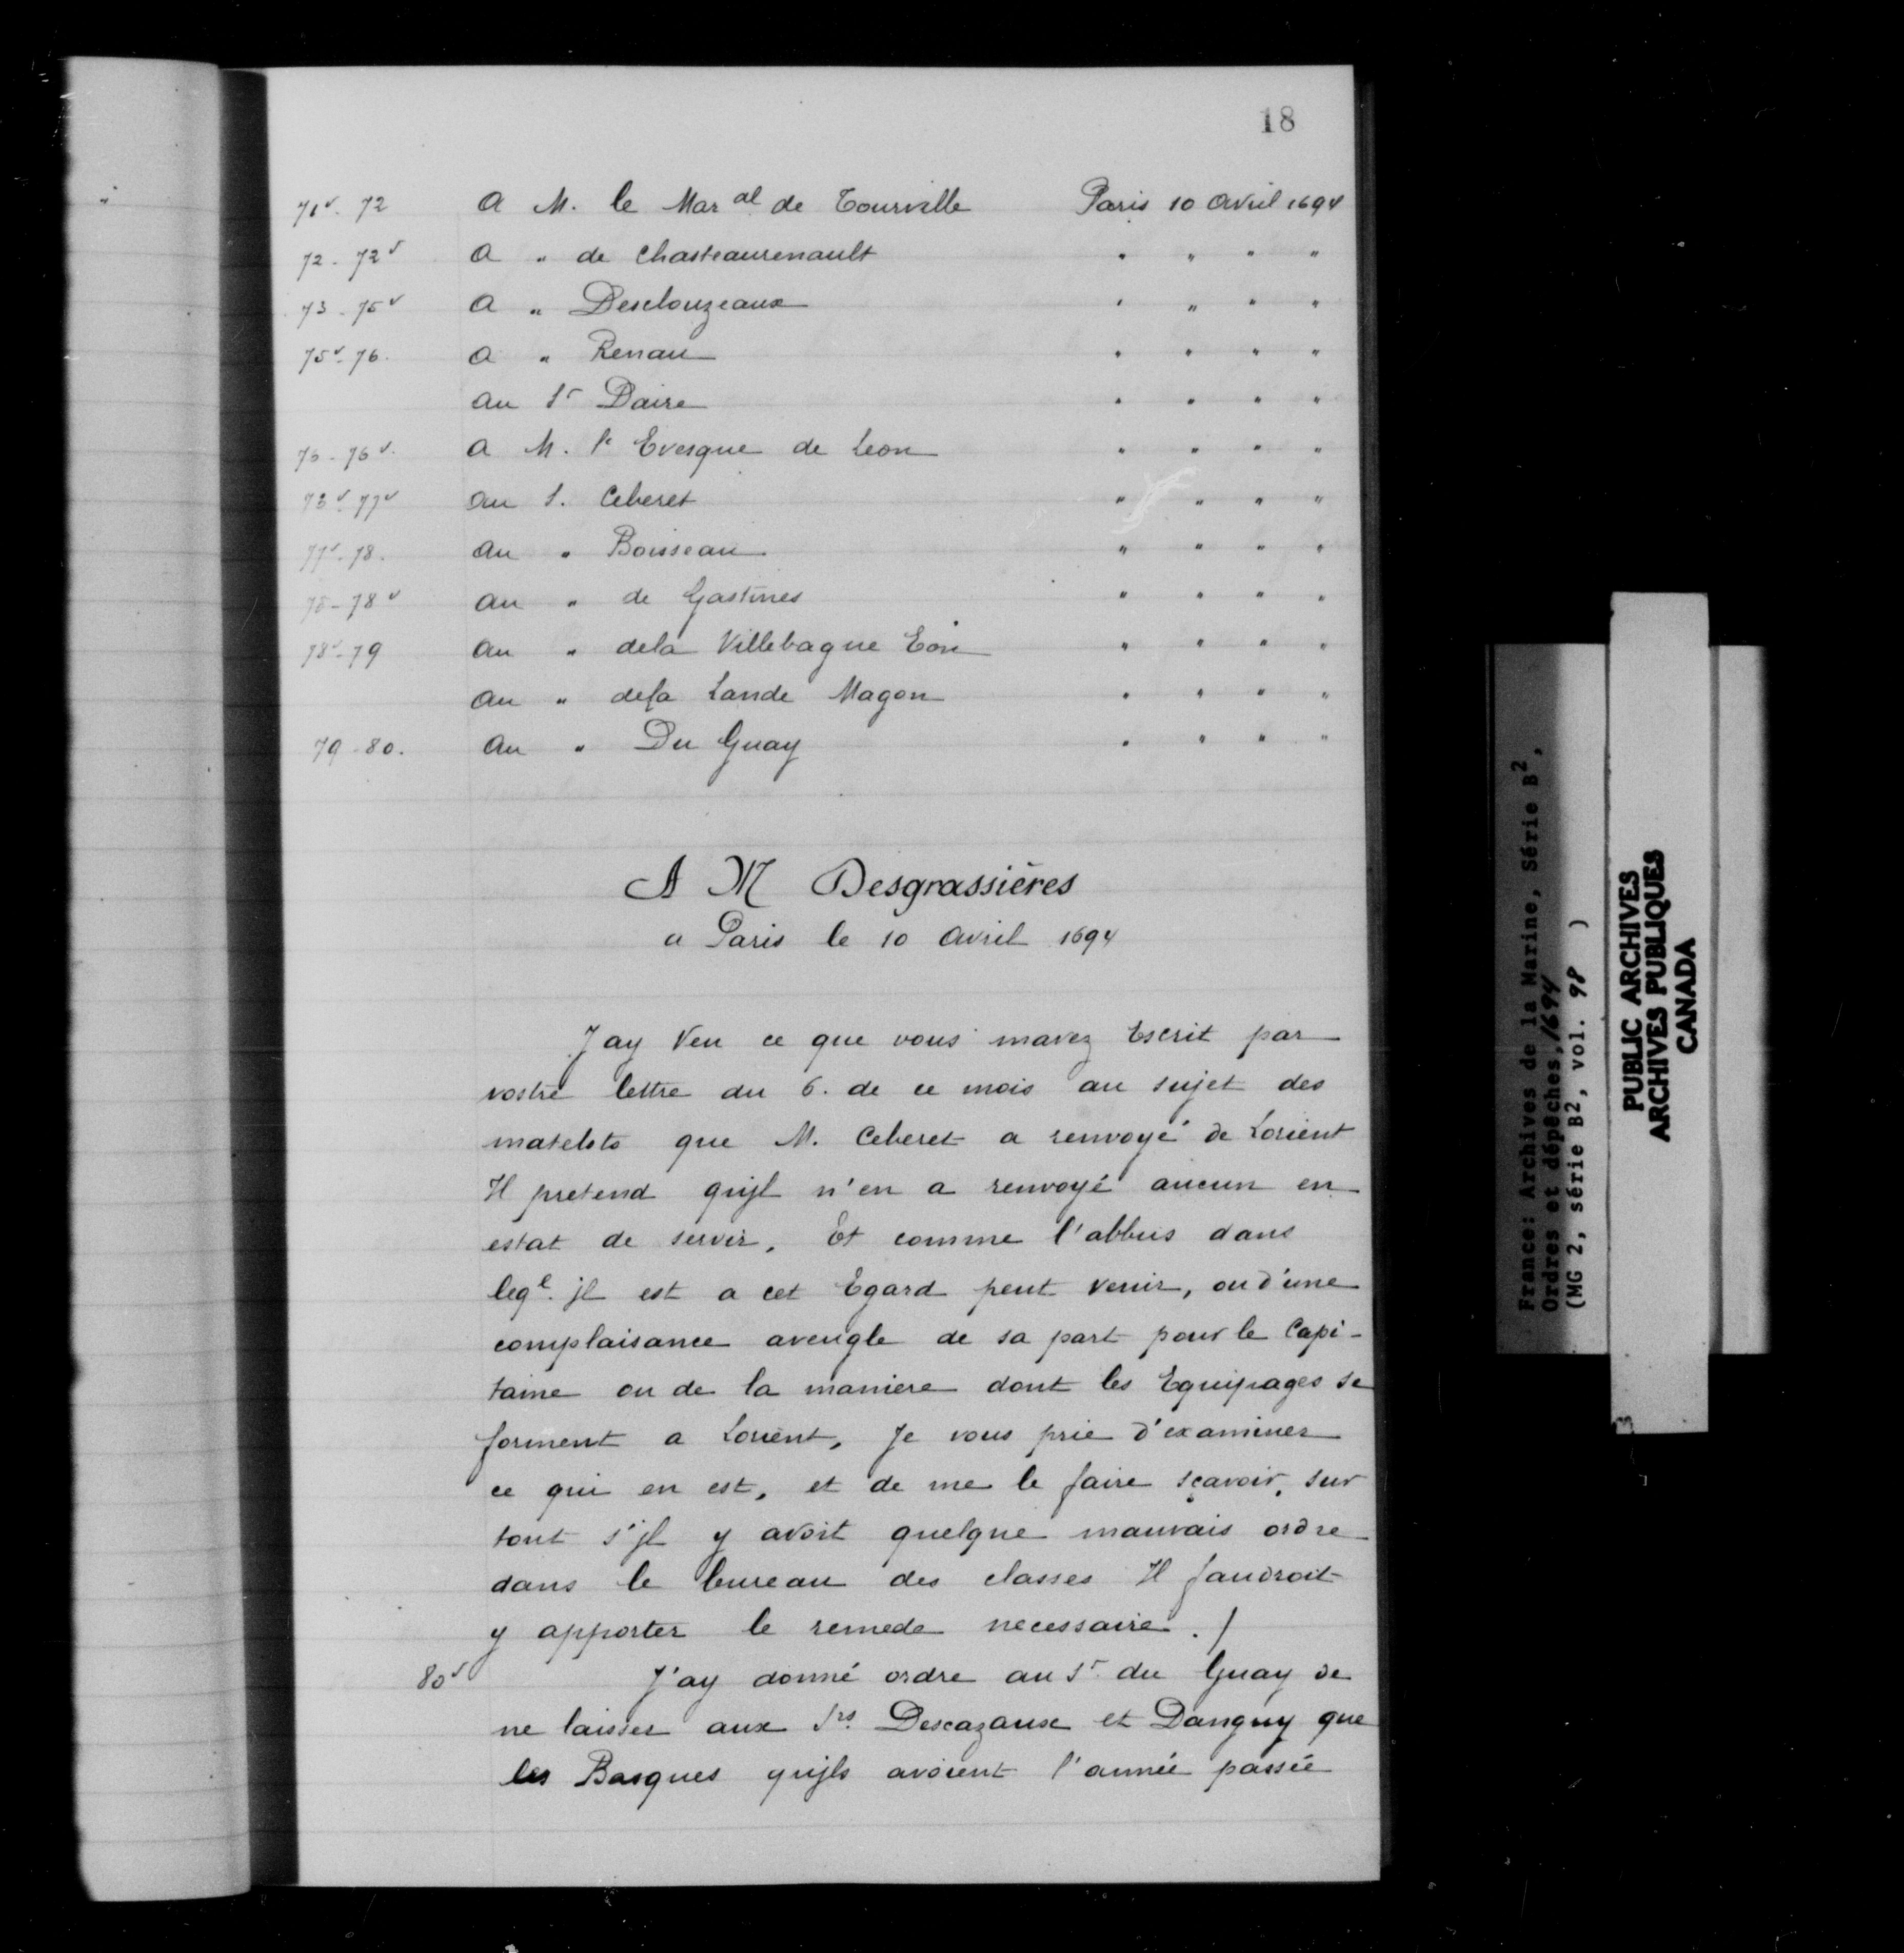 18
71v. 72 A M. le Mar al de Tourville Paris 10 Avril 1694
72 - 72v A " de Chasteaurenault " " " "
73 - 75v A " Desclouzeaux " " " "
75v. 76. A " Renau " " " "
au Sr Daire " " " "
76 - 76v. A M. l' Evesque de Leon " " " "
au S. Ceberet " " " "
77v. 78. au " Boisseau " " " "
78 - 78v au " de Gastines " " " "
78v - 79 au " dela Villebague Eon " " " "
au " dela Lande Magon " " " "
79 - 80. au " Du Guay " " " "
A M Desgrassières
a Paris le 10 Avril 1694
J ay Veu ce que vous mavez Escrit par
vostre lettre du 6. de ce mois au sujet des
matelots que M. Ceberet a renvoyé de Lorient
Il pretend qu'jl n'en a renvoyé aucun en
estat de servir, Et comme l'abbus dans
leql. jl est a cet Egard peut venir, ou d'une
complaisance aveugle de sa part pour le Capi-
taine ou de la maniere dont les Equipages se
forment a Lorient, Je vous prie d'examiner
ce qui en est, et de me le faire sçavoir, sur
tout s'jl y avoit quelque mauvais ordre
dans le bureau des classes Il faudroit
y apporter le remede necessaire ./
80v J'ay donné ordre au Sr. du Guay de
ne laisser aux Srs. Descazaux et Danguy que
les Basques qu'jls avoient l'année passée
France: Archives de la Marine, Série B2,
Ordres et dépêches, 1694
(MG 2, série B2, vol. 98 )
PUBLIC ARCHIVES
ARCHIVES PUBLIQUES
CANADA